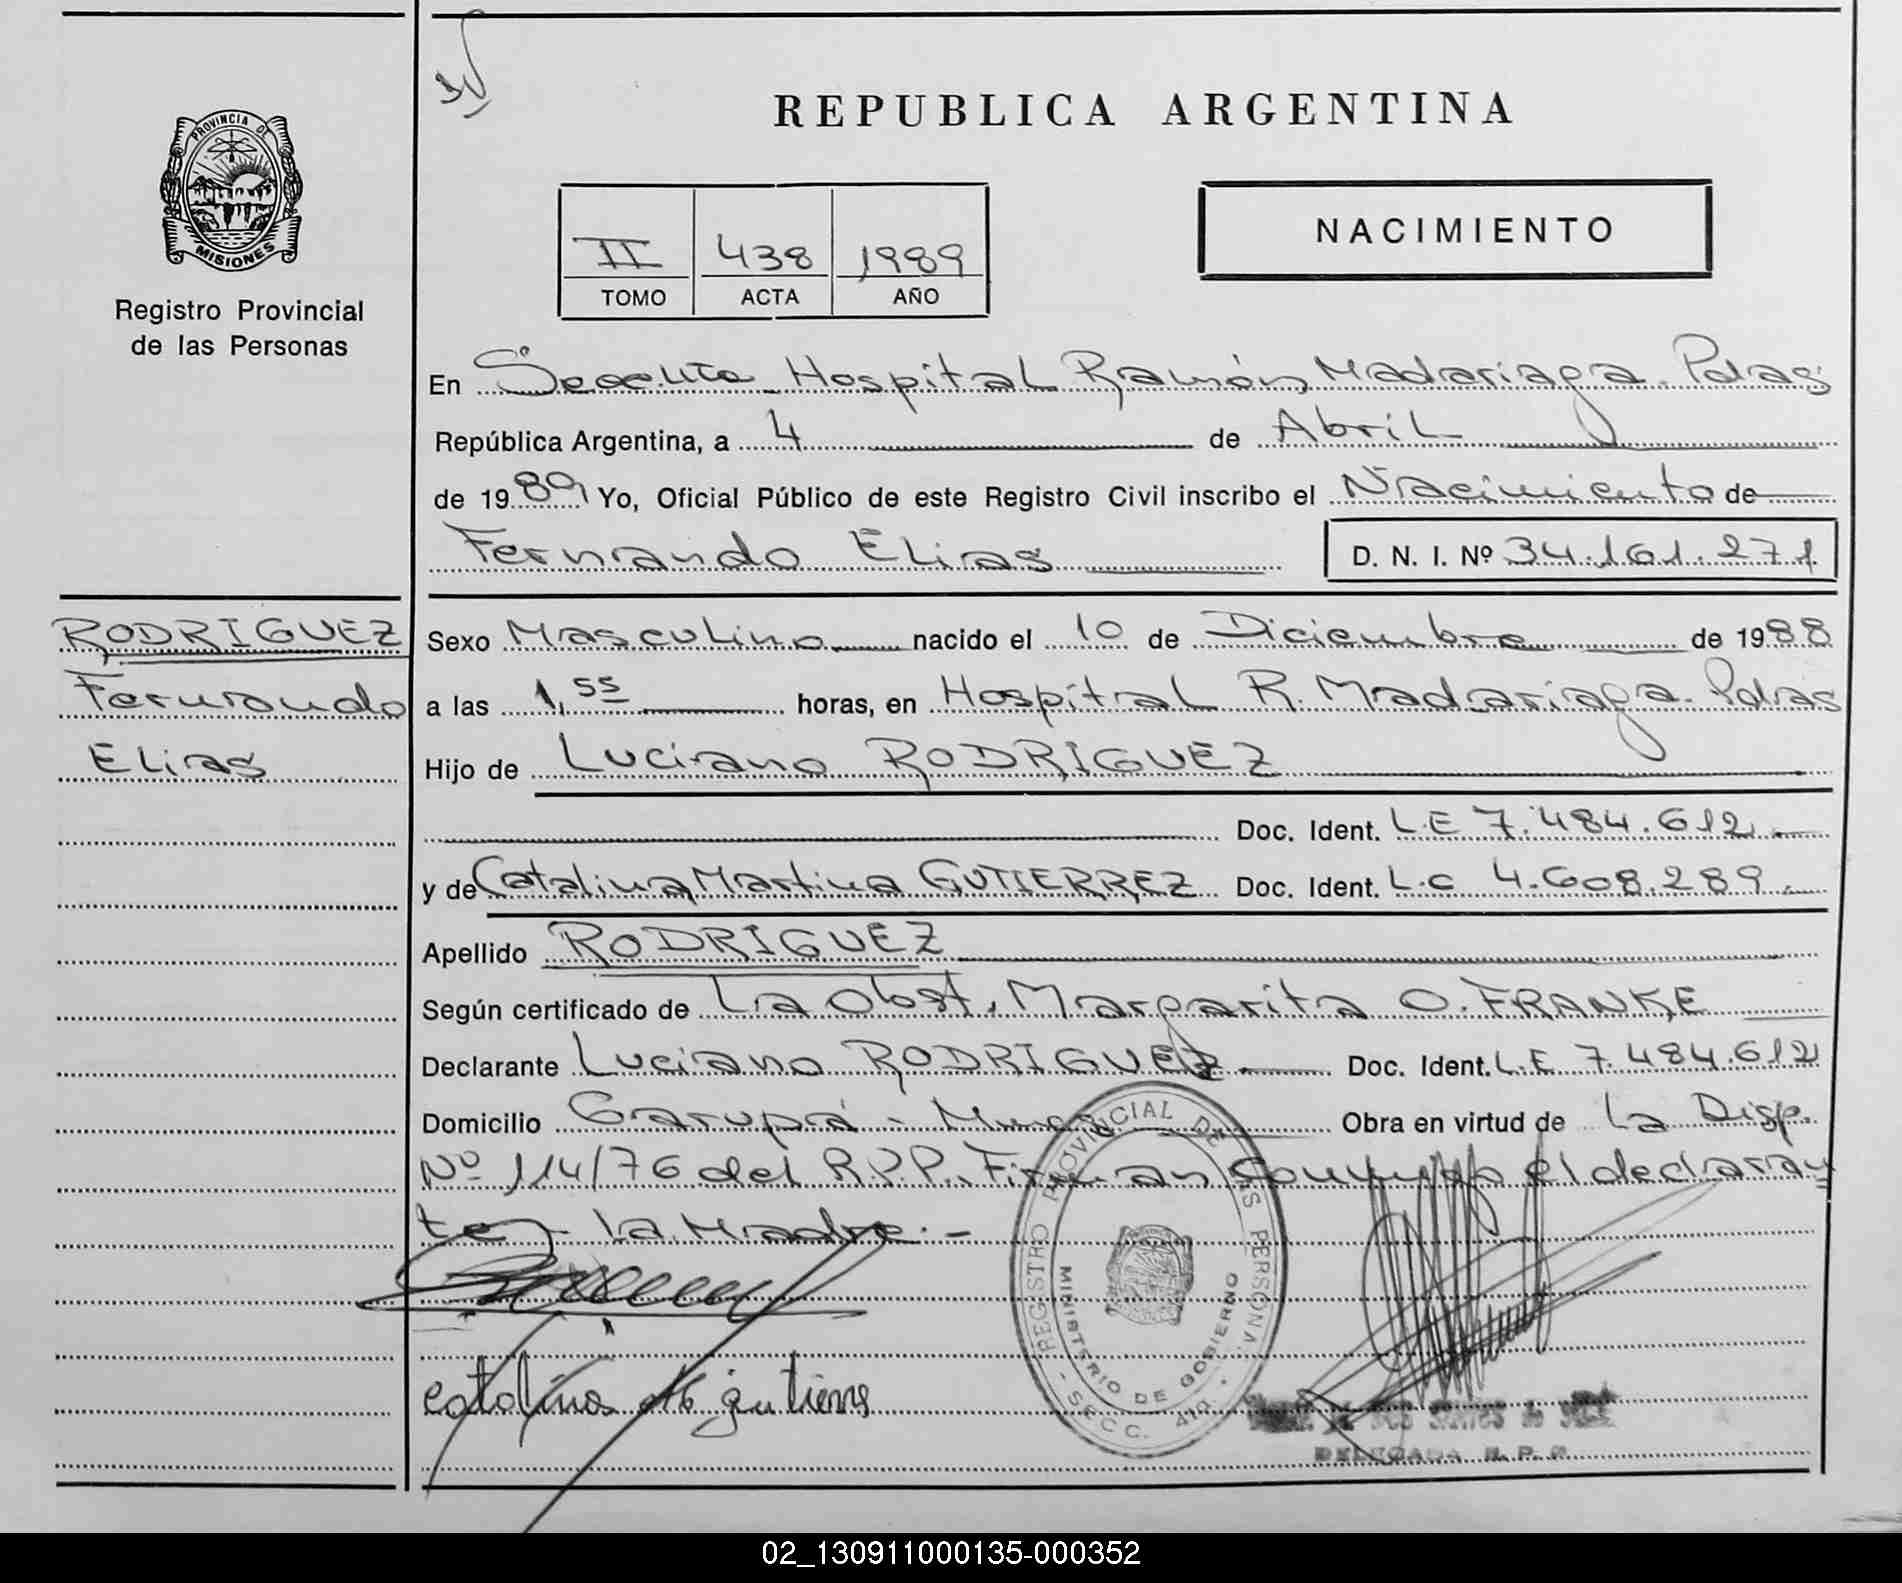 REPUBLICA ARGENTINA
PROVINCIA DE
MISIONES
Registro Provincial
de las Personas
NACIMIENTO
II 438 1989
TOMO ACTA AÑO
En Hospital Ramón Madariaga. Pdas
República Argentina, a 4 de Abril
de 1989 Yo, Oficial Público de este Registro Civil inscribo el Nacimiento de
Fernando Elias D. N. I. Nº 34.161.271
RODRIGUEZ
Fernando
Elias
Sexo Masculino nacido el 10 de Diciembre de 1988
a las 1,55 horas, en Hospital R. Madariaga. Pdas
Hijo de Luciano RODRIGUEZ
Doc. Ident. L.E 7.484.612.-
y de Catalina Martina GUTIERREZ Doc. Ident. L.C 4.608.289.
Apellido RODRIGUEZ
Según certificado de La Obst. Margarita O. FRANKE
Declarante Luciano RODRIGUEZ.- Doc. Ident. L.E 7.484.612
Domicilio Garupá - Mnes Obra en virtud de la Disp.
Nº 114/76 del R.P.P. Firman conmigo el declaran
te y la Madre.-
REGISTRO PROVINCIAL DE LAS PERSONAS
MINISTERIO DE GOBIERNO
SECC.
Catalina M gutierres
DELEGADA R.P.P.
02_130911000135-000352